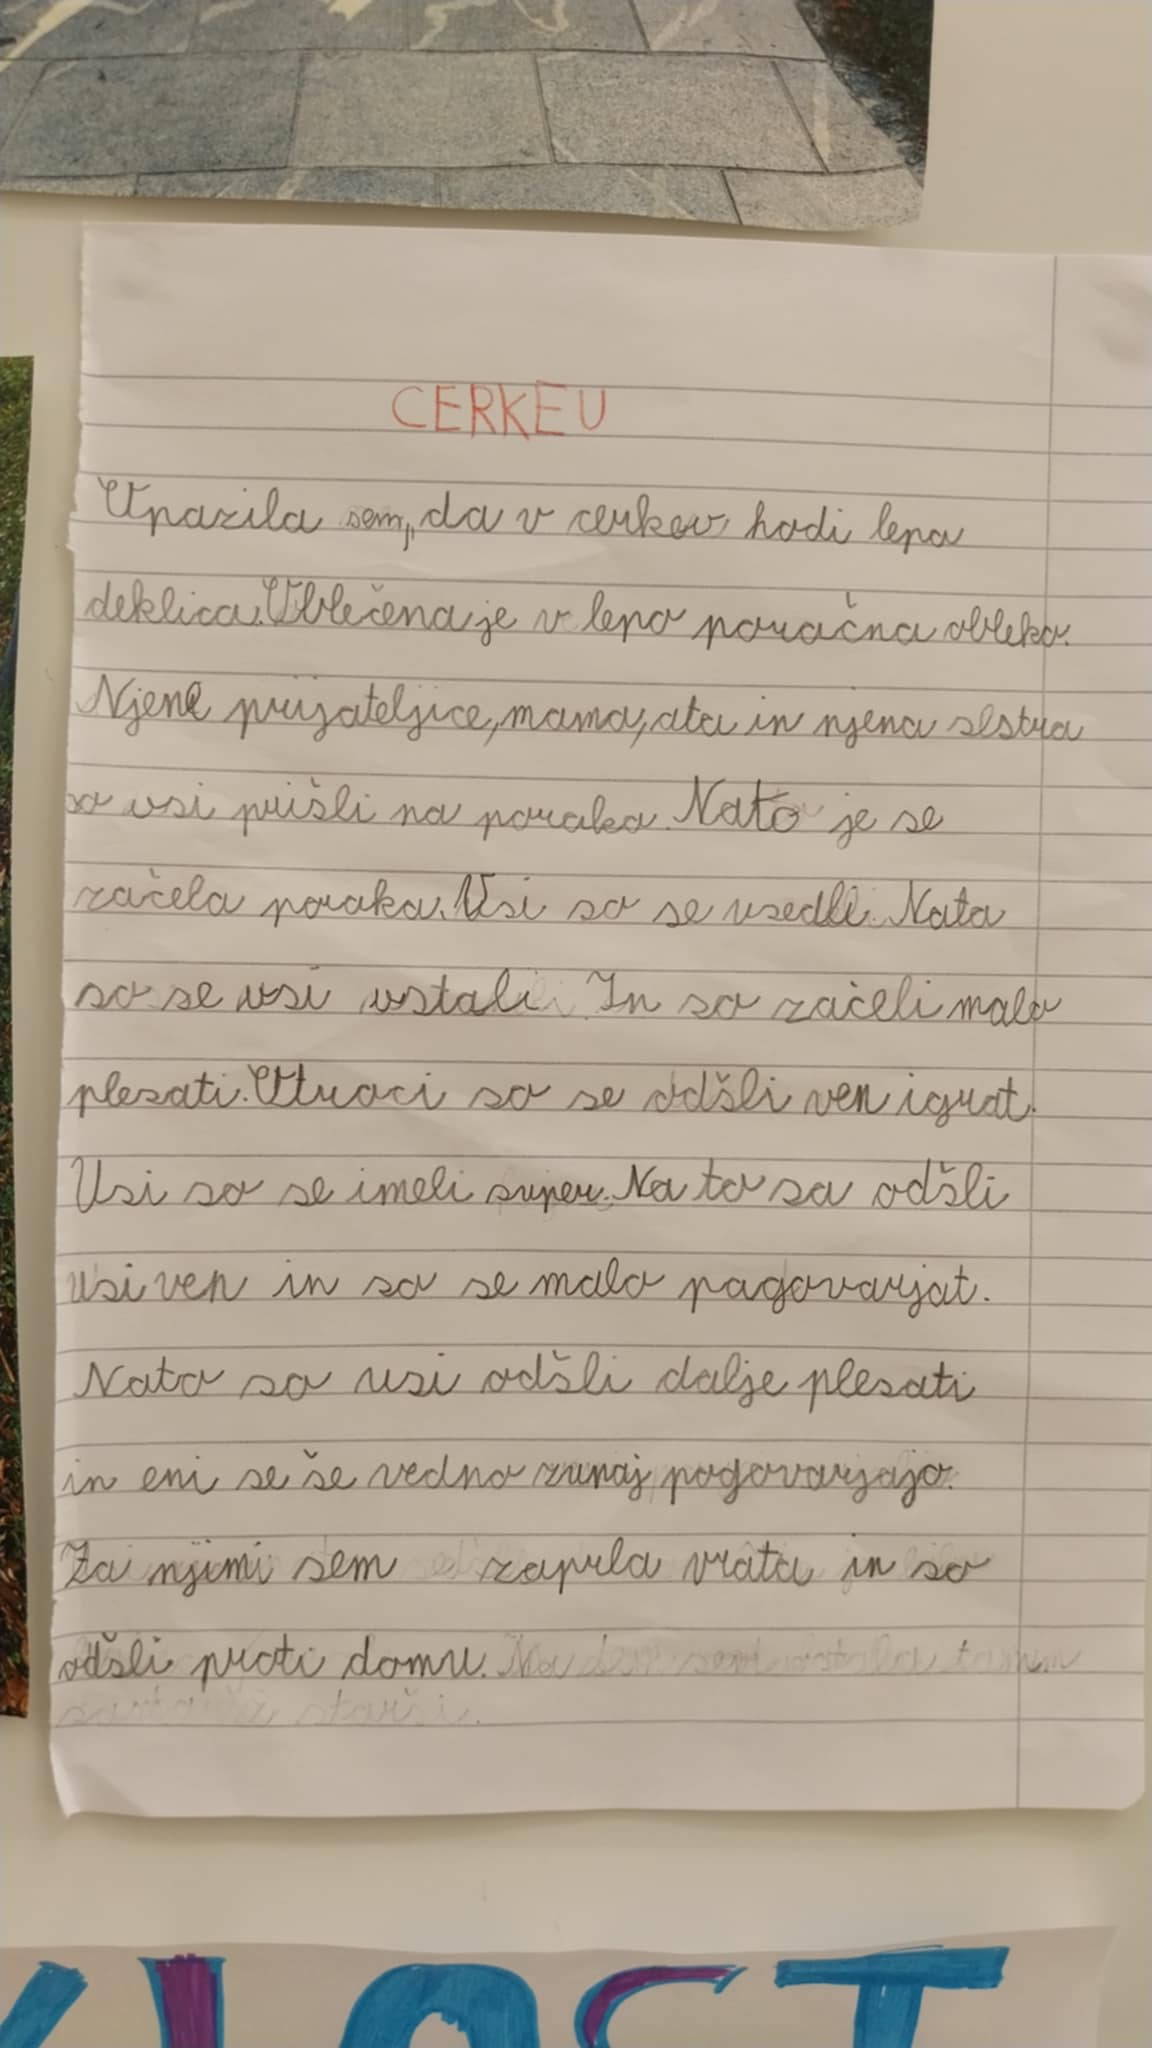 CERKEU
Opazila sem, da v cerkev hodi lepa
deklica. Oblečena je v lepo poročno obleko.
Njene prijateljice, mama, ata in njena sestra
so usi prišli na poroko. Nato je se
začela poroka. Usi so se usedli. Nato
so se usi ustali. In so začeli malo
plesati. Otroci so se odšli ven igrat.
Usi so se imeli super. Na to so odšli
usi ven in so se malo pogovarjat.
Nato so usi odšli dalje plesati
in eni se še vedno zunaj pogovarjajo.
Za njimi sem zaprla vrata in so
odšli proti domu.
LOST